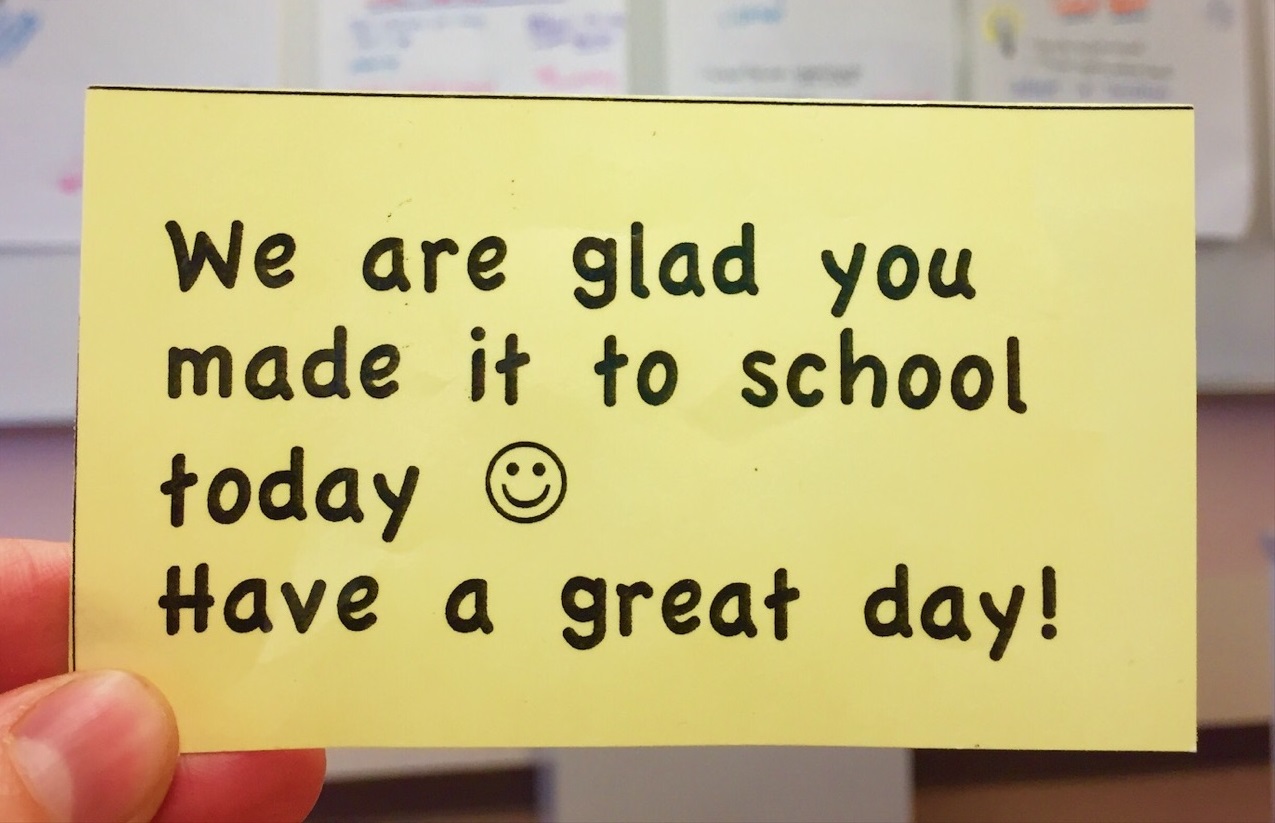 We are glad you
made it to school
today ☺
Have a great day!